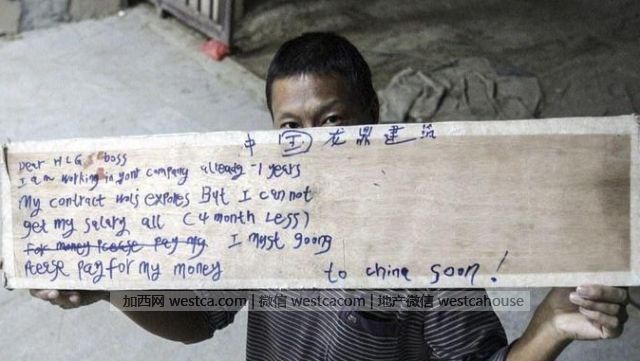 中国龙鼎建筑
Dear HLG boss
I am working in your company already 1 years
My contract was expores But I can not
get my salary all (4 month Less)
For money Pleese pay my I must going
Pleese Pay for my money to china soon!
加西网 westca.com | 微信 westcacom | 地产微信 westcahouse